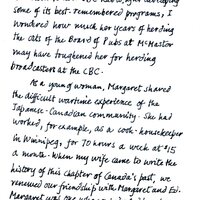 some of its best-remembered programs, I
wondered how much her years of herding
the cats of the Board of Pubs at McMaster
may have toughened her for herding
broadcasters at the CBC.
As a young woman, Margaret shared
the difficult wartime experience of the
Japanese-Canadian community. She had
worked, for example, as a cook-housekeeper
in Winnipeg, for 70 hours a week at $15
a month. When my wife came to write the
history of this chapter of Canada's past, we
renewed our friendship with Margaret and Ed.
Margaret was